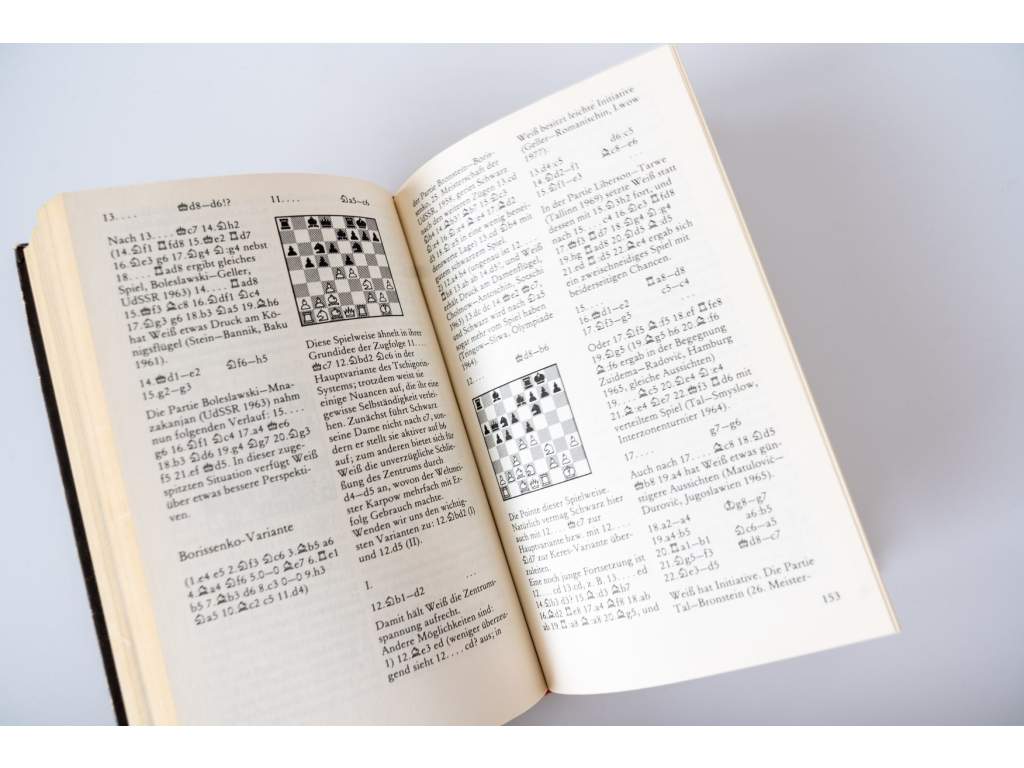 13. . . . ♚d8–d6!?
Nach 13. . . . ♚c7 14.♘h2
(14.♘f1 ♖fd8 15.♚e2 ♖d7
16.♘e3 g6 17.♘g4 ♘:g4 nebst
18. . . . ♖ad8 ergibt gleiches
Spiel, Boleslawski–Geller,
UdSSR 1963) 14. . . . ♖ad8
15.♚f3 ♗c8 16.♘df1 ♘c4
17.♘g3 g6 18.b3 ♘a5 19.♗h6
hat Weiß etwas Druck am Kö-
nigsflügel (Stein–Bannik, Baku
1961).
14.♚d1–e2 ♘f6–h5
15.g2–g3
Die Partie Boleslawski–Mna-
zakanjan (UdSSR 1963) nahm
nun folgenden Verlauf: 15. . . .
g6 16.♘f1 ♘c4 17.a4 ♚e6
18.b3 ♘d6 19.♘g4 ♘g7 20.♘g3
f5 21.ef ♚d5. In dieser zuge-
spitzten Situation verfügt Weiß
über etwas bessere Perspekti-
ven.
Borissenko-Variante
(1.e4 e5 2.♘f3 ♘c6 3.♗b5 a6
4.♗a4 ♘f6 5.0–0 ♗e7 6.♖e1
b5 7.♗b3 d6 8.c3 0–0 9.h3
♘a5 10.♗c2 c5 11.d4)
11. . . . ♘a5–c6
Diese Spielweise ähnelt in ihrer
Grundidee der Zugfolge 11. . . .
♚c7 12.♘bd2 ♘c6 in der
Hauptvariante des Tschigorin-
Systems; trotzdem weist sie
einige Nuancen auf, die ihr eine
gewisse Selbständigkeit verlei-
hen. Zunächst führt Schwarz
seine Dame nicht nach c7, son-
dern er stellt sie aktiver auf b6
auf; zum anderen bietet sich für
Weiß die unverzügliche Schlie-
ßung des Zentrums durch
d4–d5 an, wovon der Weltmei-
ster Karpow mehrfach mit Er-
folg Gebrauch machte.
Wenden wir uns den wichtig-
sten Varianten zu: 12.♘bd2 (I)
und 12.d5 (II).
I.
12.♘b1–d2 . . .
Damit hält Weiß die Zentrums-
spannung aufrecht.
Andere Möglichkeiten sind:
1) 12.♗e3 ed (weniger überzeu-
gend sieht 12. . . . cd? aus; in
der Partie Bronstein–Boris-
senko, 25. Meisterschaft der
UdSSR 1958, geriet Schwarz
nach den weiteren Zügen 13.cd
in eine wenig benei-
denswerte Lage) 13.cd ♘b4 mit
gutem schwarzem Spiel.
(Tringow–Smyslow, Olympiade
1964).
12. . . . ♚d8–b6
Die Pointe dieser Spielweise.
Natürlich vermag Schwarz hier
auch mit 12. . . . ♚c7 zur
Hauptvariante bzw. mit 12. . . .
♘d7 zur Keres-Variante über-
zuleiten.
Eine noch junge Fortsetzung ist
12. . . . cd 13.cd, z. B. 13. . . . ed
14.♘b3 d3? 15.♗:d3 ♗b7
16.♗d2 ♖e8 17.a4 ♗f8 18.ab
ab 19.♖:a8 ♗:a8 20.♗g5, und
Weiß besitzt leichte Initiative
(Geller–Romanischin, Lwow
1977).
13.d4:c5 d6:c5
14.♘d2–f1 ♗c8–e6
15.♘f1–e3 . . .
In der Partie Liberson–Tarwe
(Tallinn 1969) setzte Weiß statt
dessen mit 15.♘h2 fort, und
nach 15. . . . c4 16.♘e3 ♖fd8
17.♚f3 ♖d7 18.♘g4 ♘:g4
19.hg ♖ad8 20.♘d5 ♚a5
21.ed ♖:d5 22.♗e4 ergab sich
ein zweischneidiges Spiel mit
beiderseitigen Chancen.
15. . . . ♖a8–d8
16.♚d1–e2 c5–c4
17.♘f3–g5 . . .
Oder 17.♘f5 ♗:f5 18.ef ♖fe8
19.♘g5 (19.♗g5 h6 20.♗:f6
♗:f6 ergab in der Begegnung
Zuidema–Radović, Hamburg
1965, gleiche Aussichten)
verteiltem Spiel (Tal–Smyslow,
Interzonenturnier 1964).
17. . . . g7–g6
Auch nach 17. . . . ♗c8 18.♘d5
♚b8 19.a4 hat Weiß etwas gün-
stigere Aussichten (Matulović–
Durović, Jugoslawien 1965).
18.a2–a4 ♔g8–g7
19.a4:b5 a6:b5
20.♖a1–b1 ♘c6–a5
21.♘g5–f3 ♚d8–c7
22.♘e3–d5
Weiß hat Initiative. Die Partie
Tal–Bronstein (26. Meister-
153